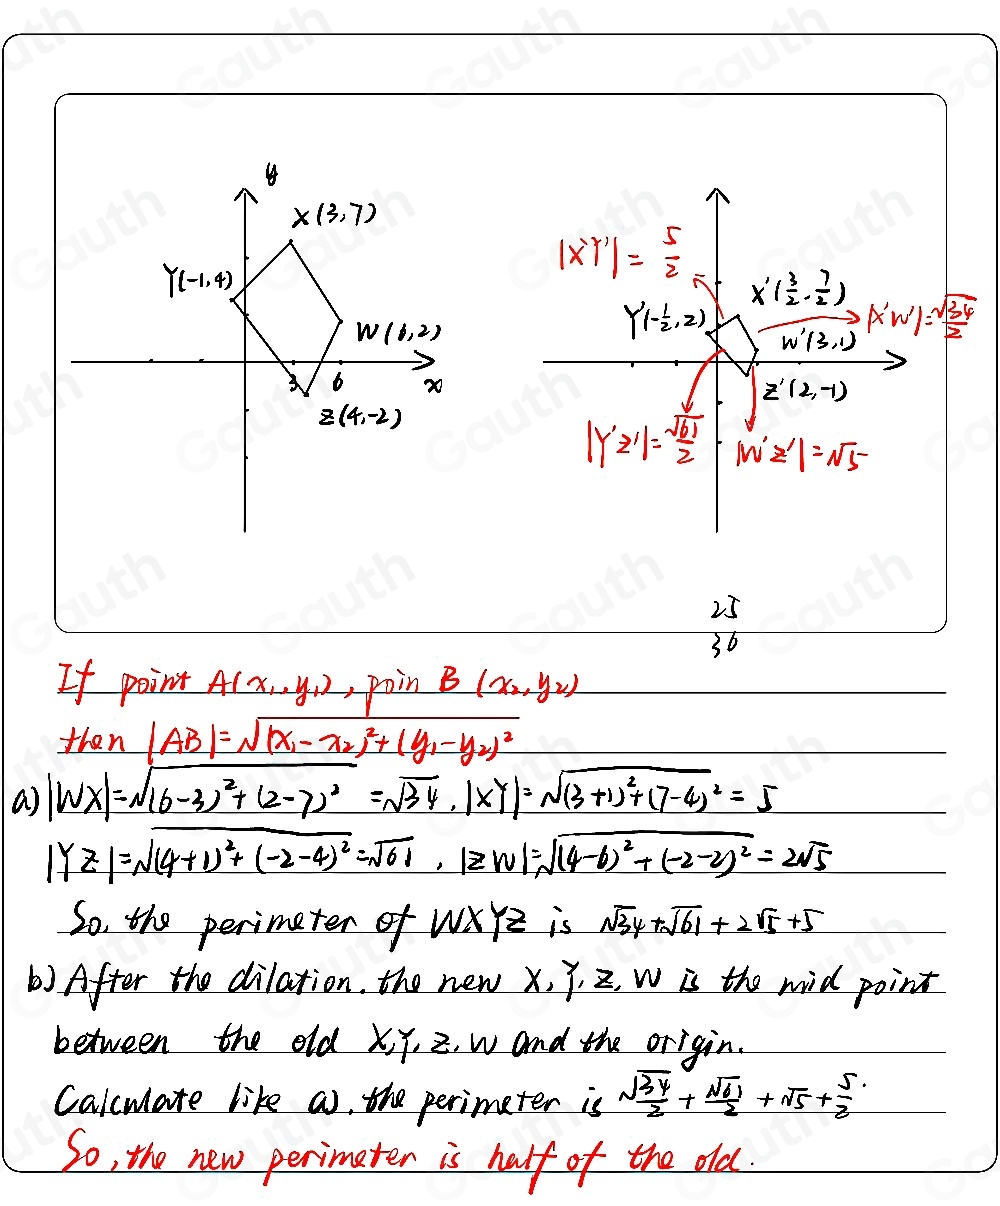 y
X(3,7)
Y(-1,4)
W(6,2)
3 6
x
Z(4,-2)
|X'Y'| = 5/2
X'(3/2, 7/2)
Y'(-1/2, 2)
|X'W'| = √34/2
W'(3,1)
Z'(2,-1)
|Y'Z'| = √61/2
|W'Z'| = √5
25
36
If point A(x₁, y₁), poin B (x₂, y₂)
then |AB| = √(x₁-x₂)²+(y₁-y₂)²
a) |WX| = √(6-3)²+(2-7)² = √34, |XY| = √(3+1)²+(7-4)² = 5
|YZ| = √(4+1)²+(-2-4)² = √61, |ZW| = √(4-6)²+(-2-2)² = 2√5
So, the perimeter of WXYZ is √34+√61+2√5+5
b) After the dilation. the new X, Y, Z, W is the mid point
between the old X, Y, Z, W and the origin.
Calculate like a), the perimeter is √34/2 + √61/2 + √5 + 5/2.
So, the new perimeter is half of the old.
Gauth